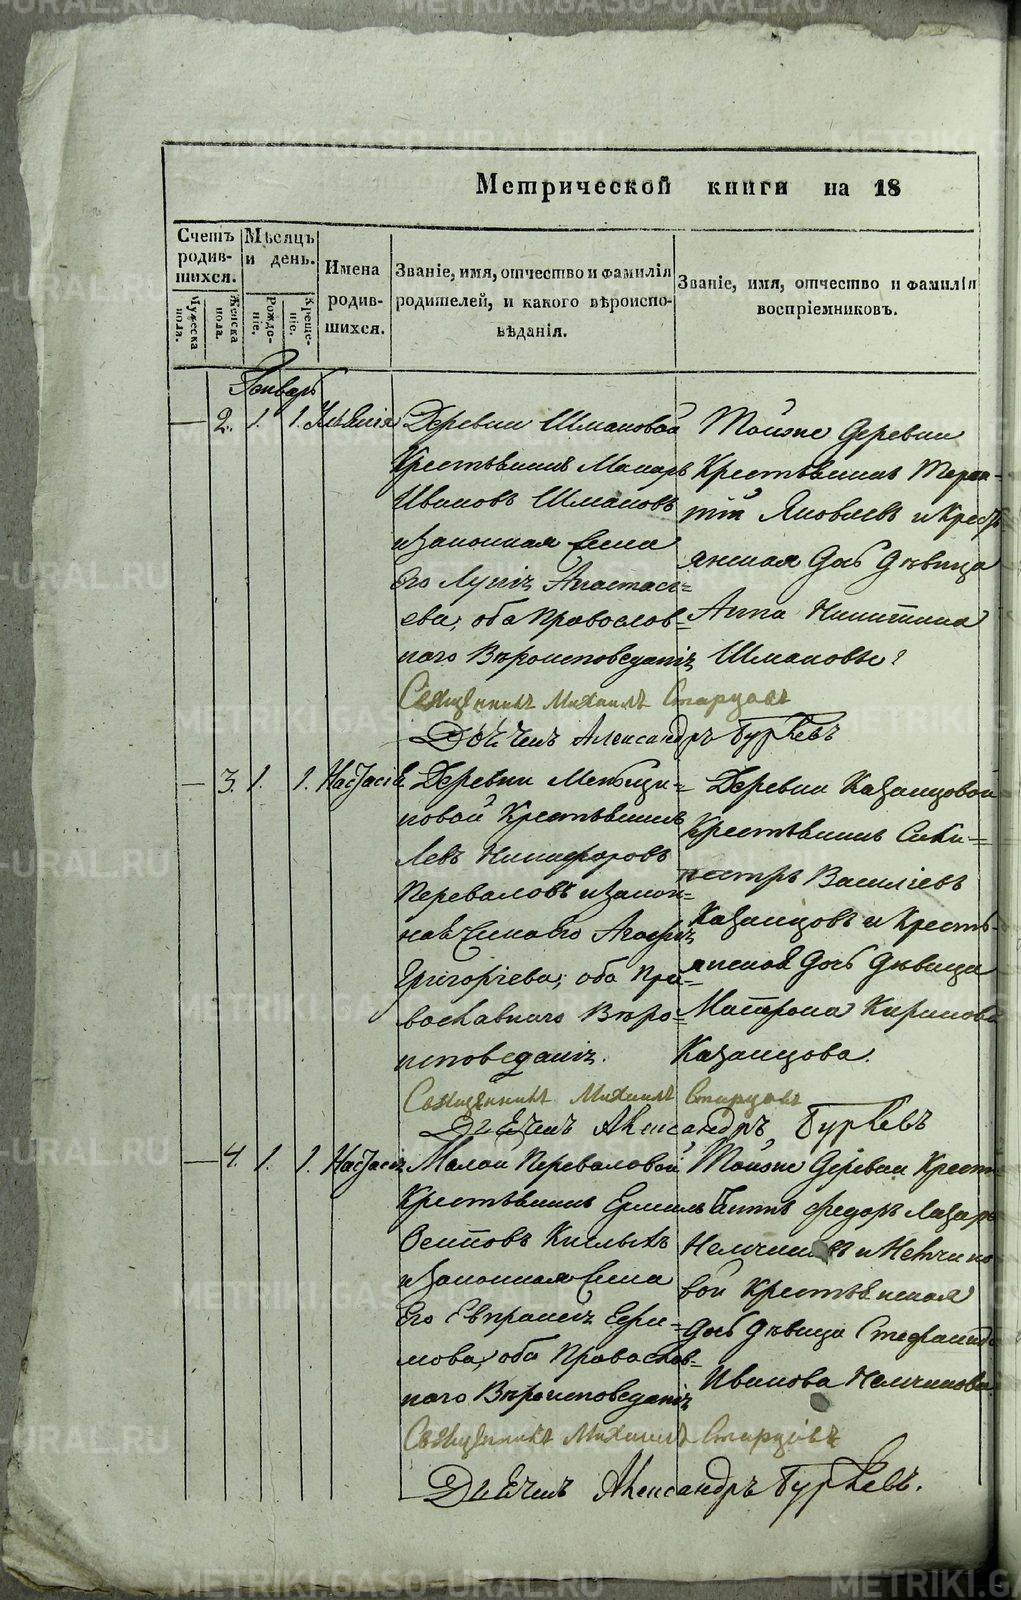 METRIKI.GASO-URAL.RU
Метрической книги на 18
Счетъ родив-шихся.
Мужеска пола.
Женска пола.
Мѣсяцъ и день.
Рожде-нія.
Креще-нія.
Имена родив-шихся.
Званіе, имя, отчество и фамилія родителей, и какого вѣроиспо-вѣданія.
Званіе, имя, отчество и фамилія воспріемниковъ.
Январь
2. 1. 1.
Деревни Шмаковой
Крестьянинъ Макаръ
Ивановъ Шмаковъ
и законная Жена
Его Анастась=
ева, оба Православ=
наго Вѣроисповеданія
Тойже деревни
Крестьянинъ Терен-
тій Яковлевъ и Кресть
янская дочь дѣвица
Анна Никитина
Шмаковы
Священникъ Михаилъ Старцовъ
Дьячекъ Александръ
3. 1. 1. Настасія
Деревни
новой Крестьянинъ
Левъ Никифоровъ
Переваловъ и закон=
ная Жена Его
Григорьева, оба Пра=
вославнаго Вѣро=
исповеданія.
Деревни Казанцовой
Крестьянинъ Силь=
вестръ Василіевъ
Казанцовъ и Кресть-
янская дочь дѣвица
Матрона Карпова
Казанцова.
Священникъ Михаилъ Старцовъ
Дьячекъ Александръ
4. 1. 1. Настасія
Малой Переваловой
Крестьянинъ Ермилъ
Осиповъ Кислыхъ
и законная Жена
Его Евпраксія Ефи=
мова, оба Православ=
наго Вѣроисповеданія
Тойже деревни Крест
Федоръ Лазаръ
Немчиновъ и Немчино
вой Крестьянская
дочь дѣвица Стефанида
Иванова Немчинова
Священникъ Михаилъ Старцовъ
Дьячекъ Александръ